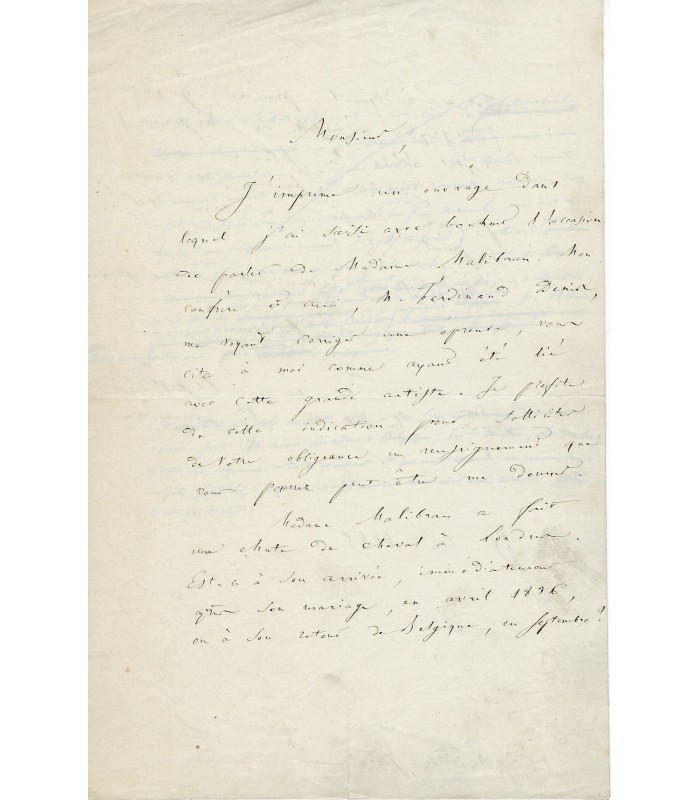 Monsieur
J'imprime un ouvrage dans
lequel j'ai saisi avec bonheur l'occasion
de parler de Madame Malibran. Mon
confrère et ami, M. Ferdinand Denis,
me voyant corriger une épreuve, vous
cita à moi comme ayant été lié
avec cette grande artiste. Je profite
de cette indication pour solliciter
de votre obligeance un renseignement que
vous pourrez peut être me donner.
Madame Malibran a fait
une chute de cheval à Londres.
Est-ce à son arrivée, immédiatement
après son mariage, en avril 1836,
ou à son retour de Belgique, en septembre?